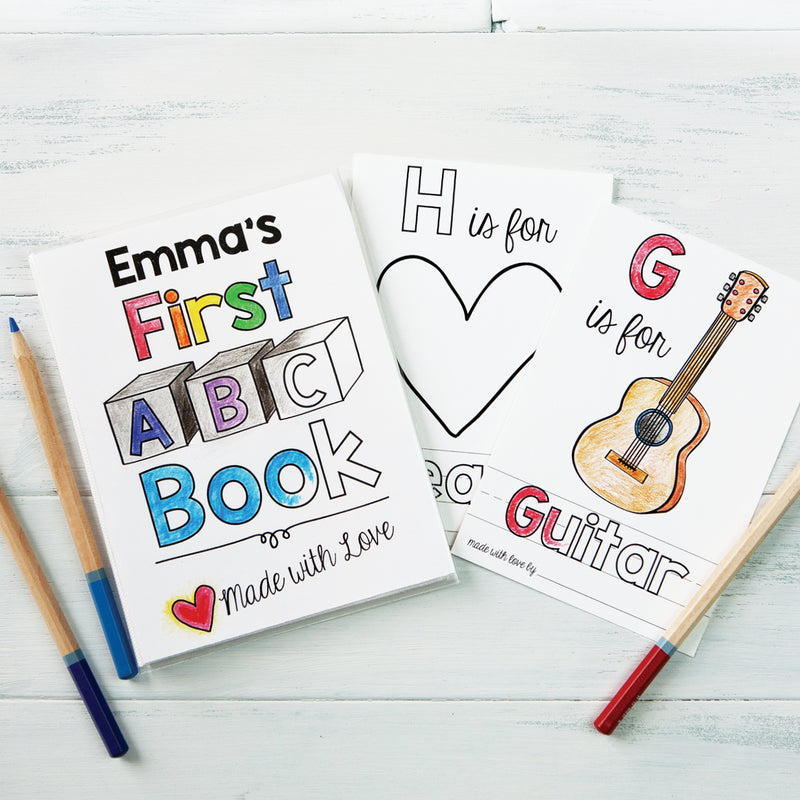 Emma's
First
A B C
Book
Made with Love
H is for
ea
G
is for
Guitar
made with love by